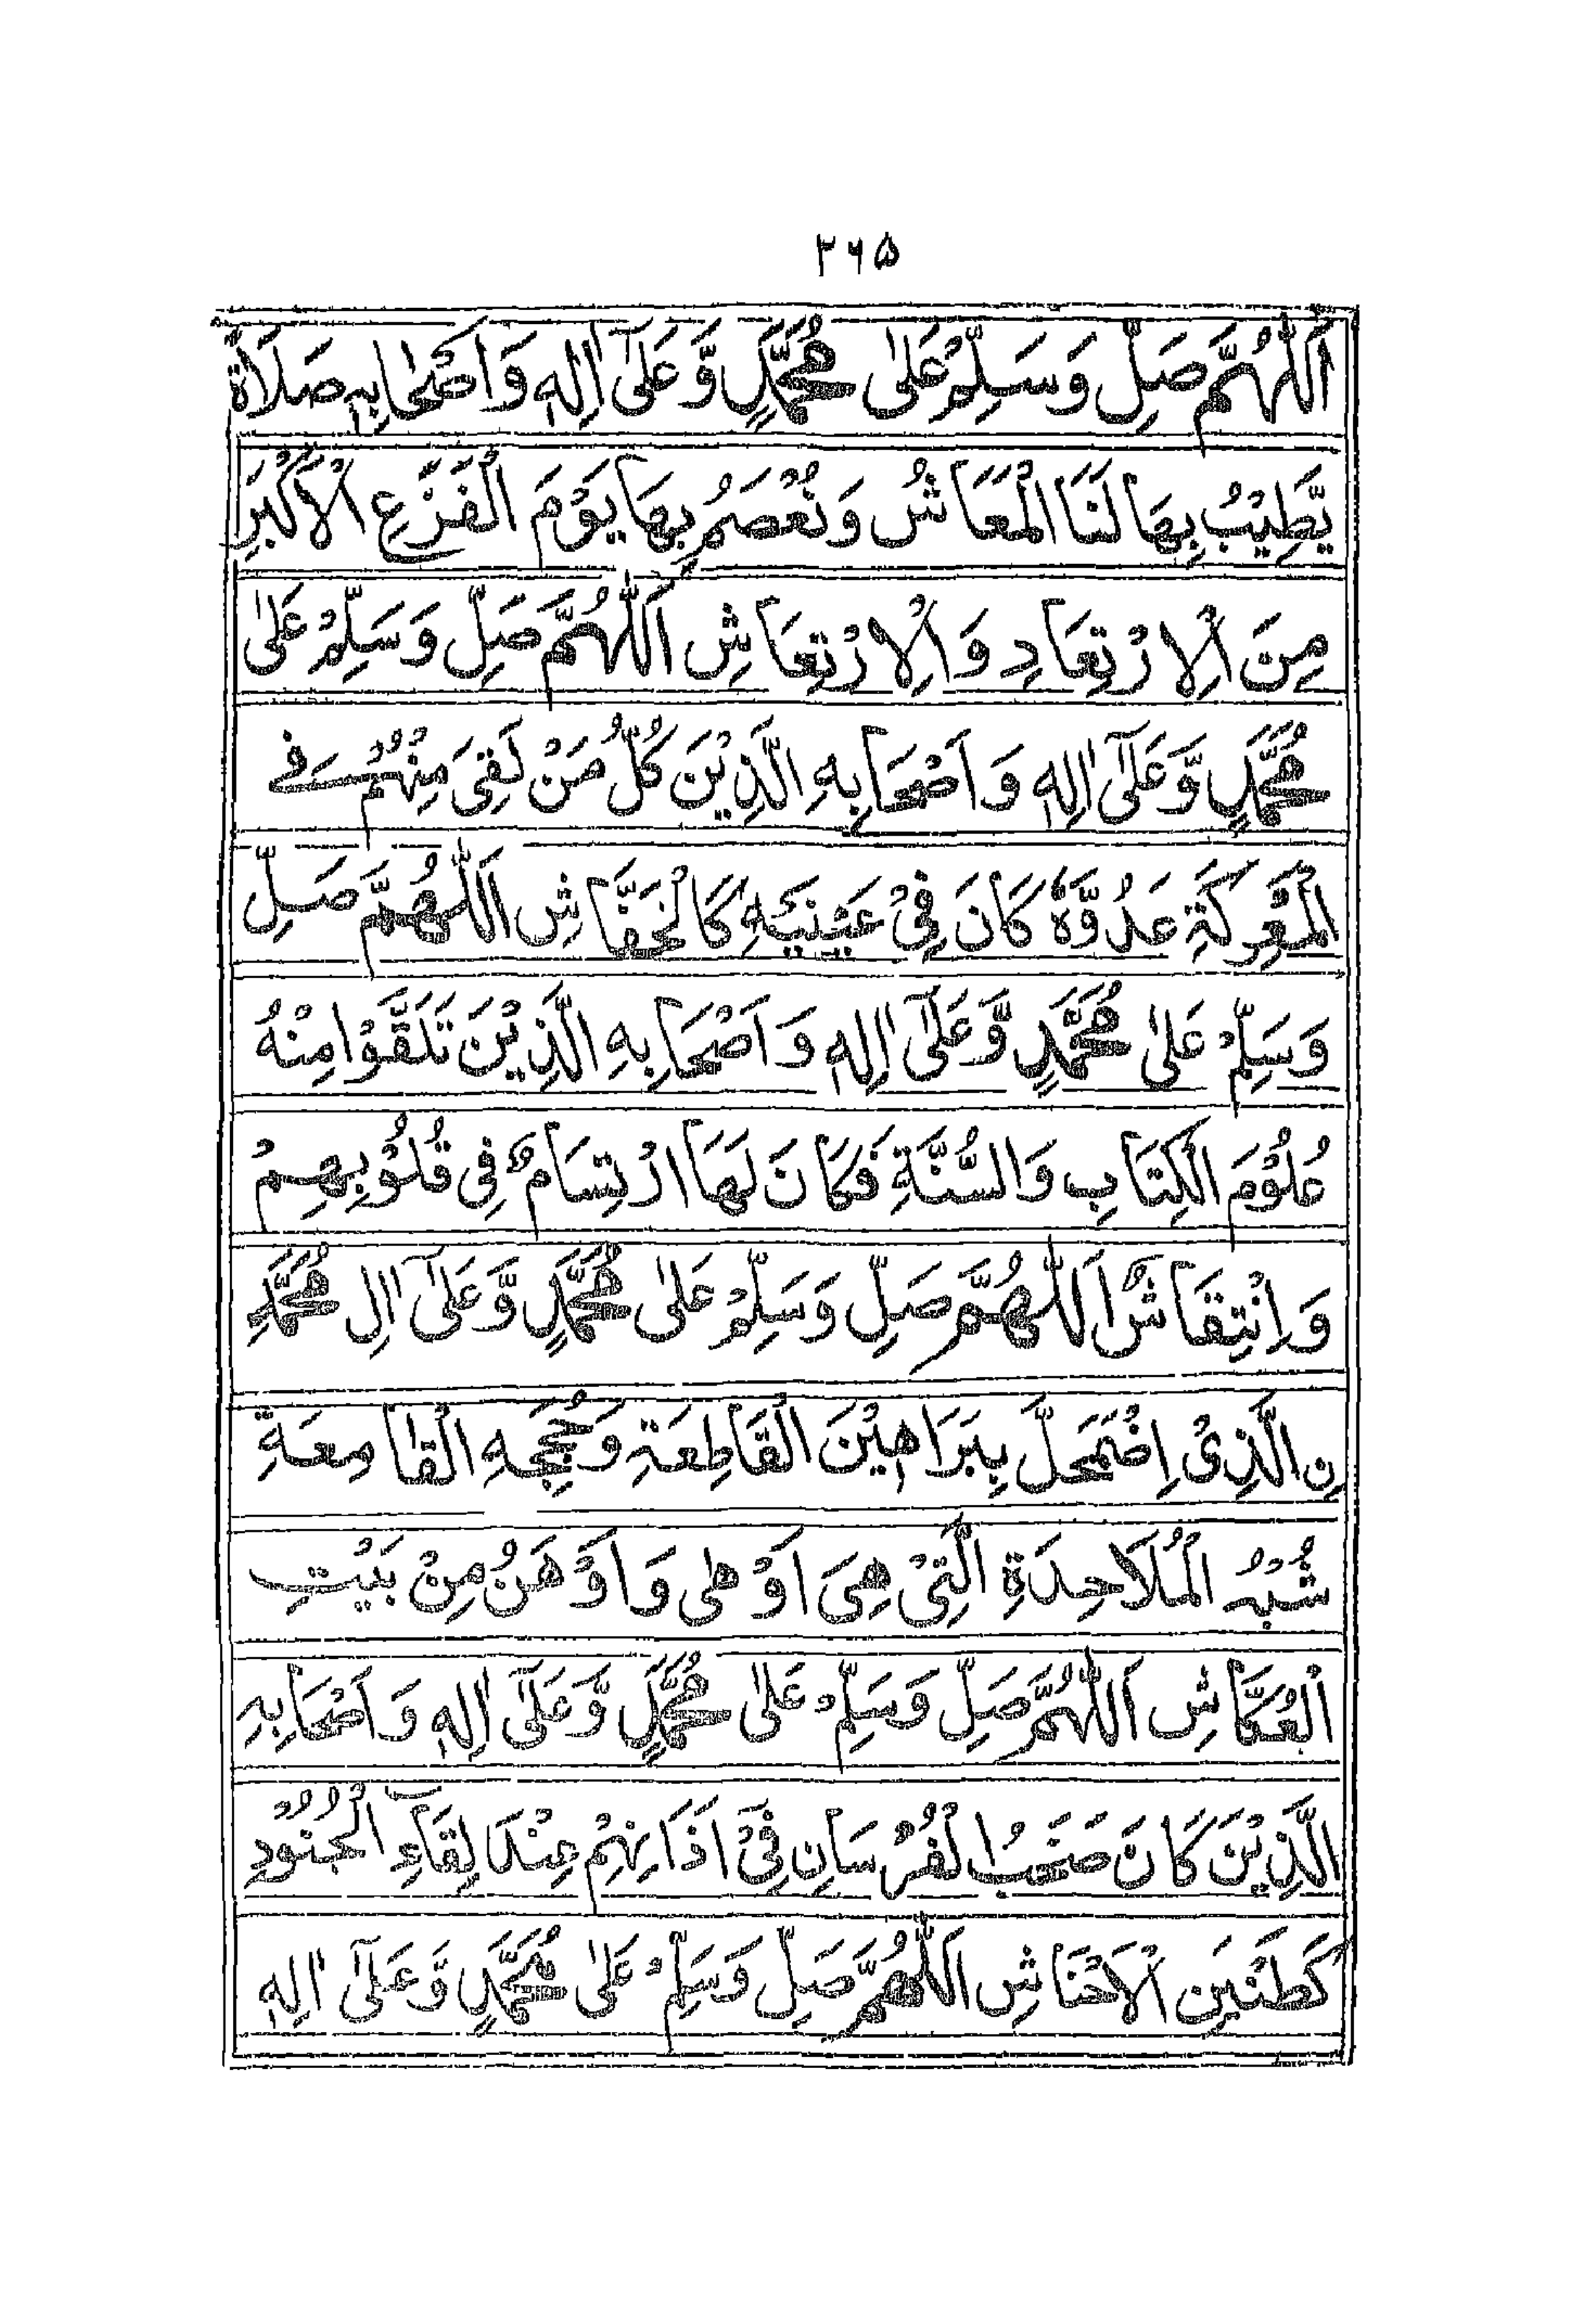 ۲۶۵
اَللّٰهُمَّ صَلِّ وَسَلِّمْ عَلٰى مُحَمَّدٍ وَّعَلٰٓى اٰلِهٖ وَاَصْحَابِهٖ صَلَاةً
يَّطِيْبُ بِهَا لَنَا الْمَعَاشُ وَنُعْصَمُ بِهَا يَوْمَ الْفَزَعِ الْاَكْبَرِ
مِنَ الْاِرْتِعَادِ وَالْاِرْتِعَاشِ اَللّٰهُمَّ صَلِّ وَسَلِّمْ عَلٰى
مُحَمَّدٍ وَّعَلٰٓى اٰلِهٖ وَاَصْحَابِهِ الَّذِيْنَ كُلُّ مَنْ لَقِيَ مِنْهُمْ فِے
الْمَعْرِكَةِ عَدُوَّهٗ كَانَ فِيْ عَيْنَيْهِ كَالْخَفَّاشِ اَللّٰهُمَّ صَلِّ
وَسَلِّمْ عَلٰى مُحَمَّدٍ وَّعَلٰٓى اٰلِهٖ وَاَصْحَابِهِ الَّذِيْنَ تَلَقَّوْا مِنْهُ
عُلُوْمَ الْكِتَابِ وَالسُّنَّةِ فَكَانَ لَهَا ارْتِسَامٌ فِي قُلُوْبِهِمْ
وَاِنْتِقَاشٌ اَللّٰهُمَّ صَلِّ وَسَلِّمْ عَلٰى مُحَمَّدٍ وَّعَلٰٓى اٰلِ مُحَمَّدِ
نِ الَّذِىْ اِضْمَحَلَّ بِبَرَاهِيْنَ الْقَاطِعَةِ وَحُجَجِهِ الْقَامِعَةِ
شُبْهُ الْمُلَاحِدَةِ الَّتِيْ هِيَ اَوْهٰى وَاَوْهَنُ مِنْ بَيْتِ
الْعُكَّاشِ اَللّٰهُمَّ صَلِّ وَسَلِّمْ عَلٰى مُحَمَّدٍ وَّعَلٰٓى اٰلِهٖ وَاَصْحَابِهِ
الَّذِيْنَ كَانَ صَخَبُ الْفُرْسَانِ فِيْٓ اٰذَانِهِمْ عِنْدَ لِقَآءِ الْجُنُوْدِ
كَطَنَيِنِ الْاَحْنَاشِ اَللّٰهُمَّ صَلِّ وَسَلِّمْ عَلٰى مُحَمَّدٍ وَّعَلٰٓى اٰلِهٖ